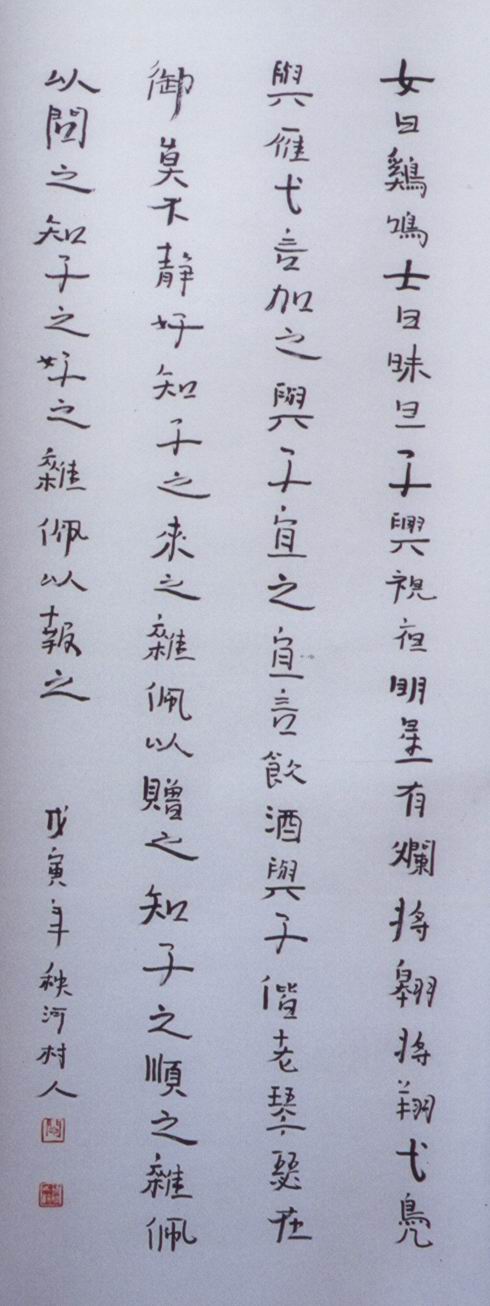 女曰鷄鳴士曰昧旦子興視夜明星有爛將翱將翔弋鳧
與雁弋言加之與子宜之宜言飲酒與子偕老琴瑟在
御莫不靜好知子之來之雜佩以贈之知子之順之雜佩
以問之知子之好之雜佩以報之
戊寅年秧河村人